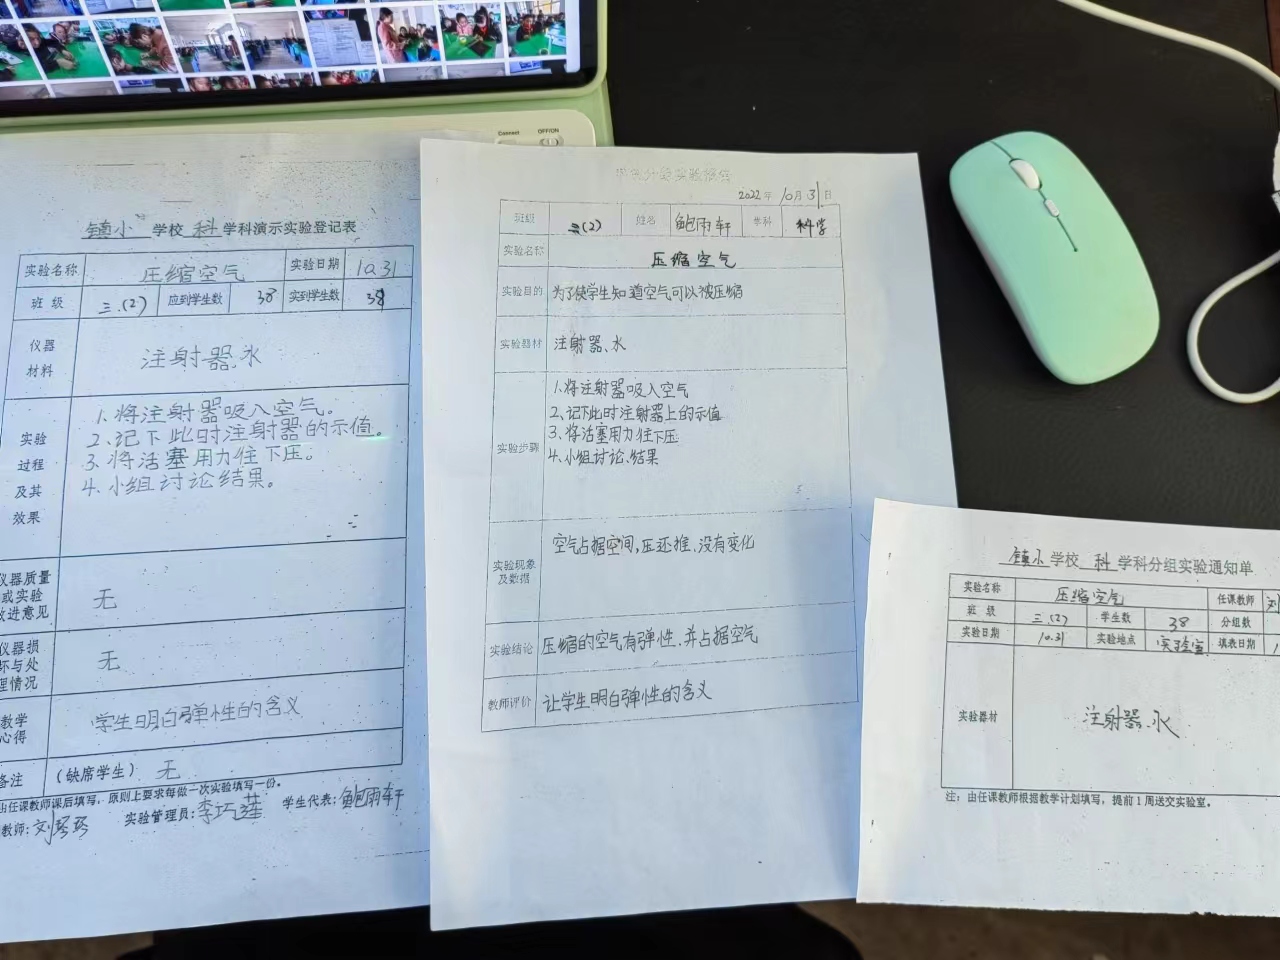 Connect
OFF/ON
镇小 学校 科 学科演示实验登记表
实验名称 压缩空气 实验日期 10.31
班 级 三.(2) 应到学生数 38 实到学生数 38
仪器
材料
注射器.水
实验
过程
及其
效果
1.将注射器吸入空气。
2.记下此时注射器的示值。
3.将活塞用力往下压。
4.小组讨论结果。
仪器质量
或实验
改进意见
无
仪器损
坏与处
理情况
无
教学
心得
学生明白弹性的含义
备注 (缺席学生) 无
由任课教师课后填写,原则上要求每做一次实验填写一份。
教师: 实验管理员:李巧莲 学生代表:鲍雨轩
2022年10月31日
班级 三(2) 姓名 鲍雨轩 学科 科学
实验名称 压缩空气
实验目的 为了使学生知道空气可以被压缩
实验器材 注射器、水
实验步骤
1.将注射器吸入空气
2.记下此时注射器上的示值
3.将活塞用力往下压
4.小组讨论、结果
实验现象
及数据
空气占据空间,压还推、没有变化
实验结论 压缩的空气有弹性、并占据空气
教师评价 让学生明白弹性的含义
镇小 学校 科 学科分组实验通知单
实验名称 压缩空气 任课教师 刘
班 级 三.(2) 学生数 38 分组数
实验日期 10.31 实验地点 实验室 填表日期 1
实验器材 注射器.水
注:由任课教师根据教学计划填写,提前1周送交实验室。